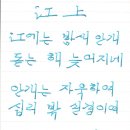 江上
江에는 밤새 안개
돋는 해 늦어지네
안개는 자욱하여
십리 밖 설경이여